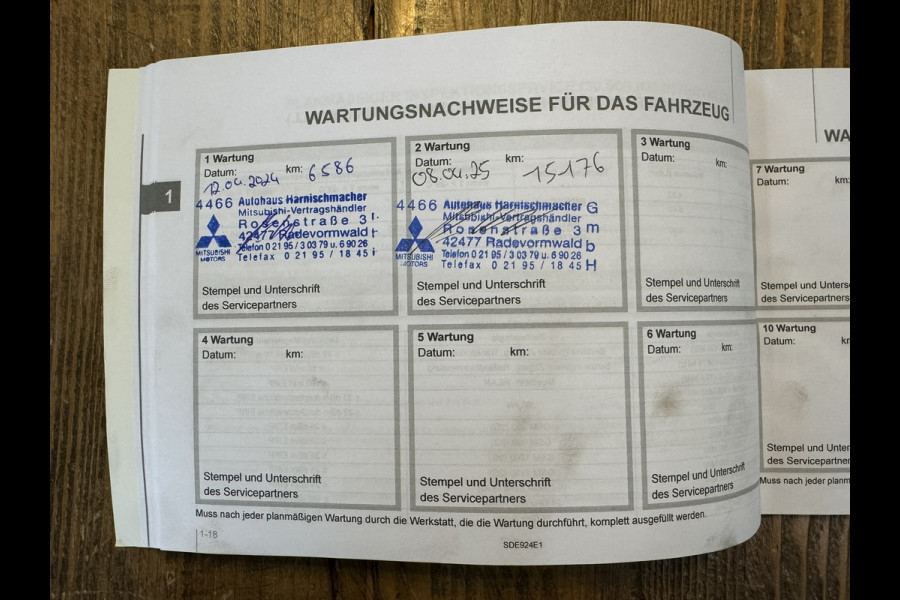 WARTUNGSNACHWEISE FÜR DAS FAHRZEUG
WA
1
1 Wartung
Datum: km:
12.04.2024 6586
4466 Autohaus Harnischmacher
Mitsubishi-Vertragshändler
Rosenstraße 3
42477 Radevormwald
Telefon 0 21 95 / 3 03 79 u. 6 90 26
Telefax 0 21 95 / 18 45
MITSUBISHI
MOTORS
Stempel und Unterschrift
des Servicepartners
2 Wartung
Datum: km:
08.04.25 15176
4466 Autohaus Harnischmacher G
Mitsubishi-Vertragshändler
Rosenstraße 3 m
42477 Radevormwald b
Telefon 0 21 95 / 3 03 79 u. 6 90 26
Telefax 0 21 95 / 18 45 H
MITSUBISHI
MOTORS
Stempel und Unterschrift
des Servicepartners
3 Wartung
Datum: km:
Stempel und Unterschrift
des Servicepartners
7 Wartung
Datum: km:
Stempel und Unters
des Servicepartners
4 Wartung
Datum: km:
Stempel und Unterschrift
des Servicepartners
5 Wartung
Datum: km:
Stempel und Unterschrift
des Servicepartners
6 Wartung
Datum: km:
Stempel und Unterschrift
des Servicepartners
10 Wartung
Datum:
Stempel und Unter
des Servicepartners
Muss nach jeder planmäßigen Wartung durch die Werkstatt, die die Wartung durchführt, komplett ausgefüllt werden.
Muss nach jeder planm
1-18
SDE924E1